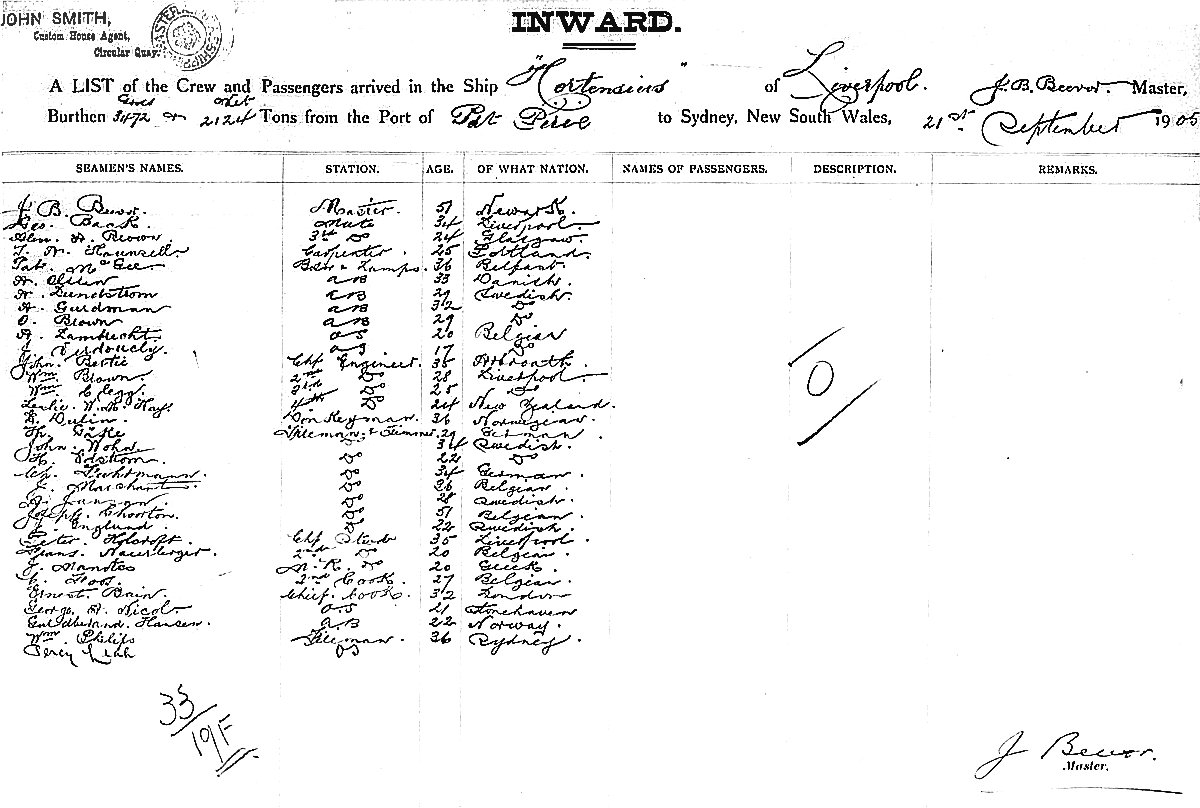 JOHN SMITH,
Custom House Agent,
Circular Quay.
INWARD.
A LIST of the Crew and Passengers arrived in the Ship "Hortensius" of Liverpool. J. B. Bewor. Master,
Burthen 3472 2124 Tons from the Port of Port Pirie to Sydney, New South Wales, 21st September 1905
SEAMEN'S NAMES. STATION. AGE. OF WHAT NATION. NAMES OF PASSENGERS. DESCRIPTION. REMARKS.
J. B. Bewor. Master. 51 Newark.
Geo. Back. Mate 34 Liverpool.
Alex. A. Brown. 3rd Do 24 Glasgow.
Hounsell. Carpenter. 25 Portland.
Pat. McGee Bosn & Lamps. 36 Belfast.
Olsen AB 33 Danish.
Lundstrom AB 29 Swedish.
A. Gurdman AB 32 Do
O. Brown AB 29 Do
A. Lambrecht. OS 20 Belgian
OS 17 Do
John. Bertie Chf Engineer. 35 Arbroath.
Wm. Brown. 2nd Do 28 Liverpool.
Wm. Clegg. 3rd Do 25 Do
Leslie. W. Hay. 4th Do 24 New Zealand.
Donkeyman. 36 Norwegian.
Fireman & Trimmer. 29 German
John. Do 34 Swedish.
Edstrom. Do 22 Do
Do 34 German.
J. Marchant. Do 26 Belgian.
J. Janson. Do 28 Swedish.
Joseph. Do 51 Belgian
Englund. Do 22 Swedish.
Peter. Holcroft. Chf Stwd 35 Liverpool.
Frans. 2nd Do 20 Belgian.
J. Mandtes M. R. Do 20 Greek.
2nd Cook. 27 Belgian.
Ernest. Bain. Chief. Cook. 32 London
George. A. Nicol. O.S 21 Stonehaven
Hansen. A.B 22 Norway.
Wm. Philips Fireman. 36 Sydney.
Percy Leah OS
0
33/19F
J Bewor.
Master.